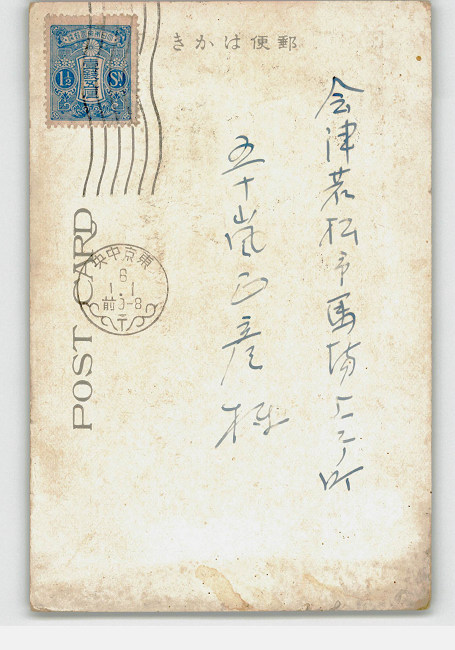 きかは便郵
会津若松市馬場上ニノ町
五十嵐正彦様
POST CARD
1½ Sn
東京中央
6
1.1
前0-8